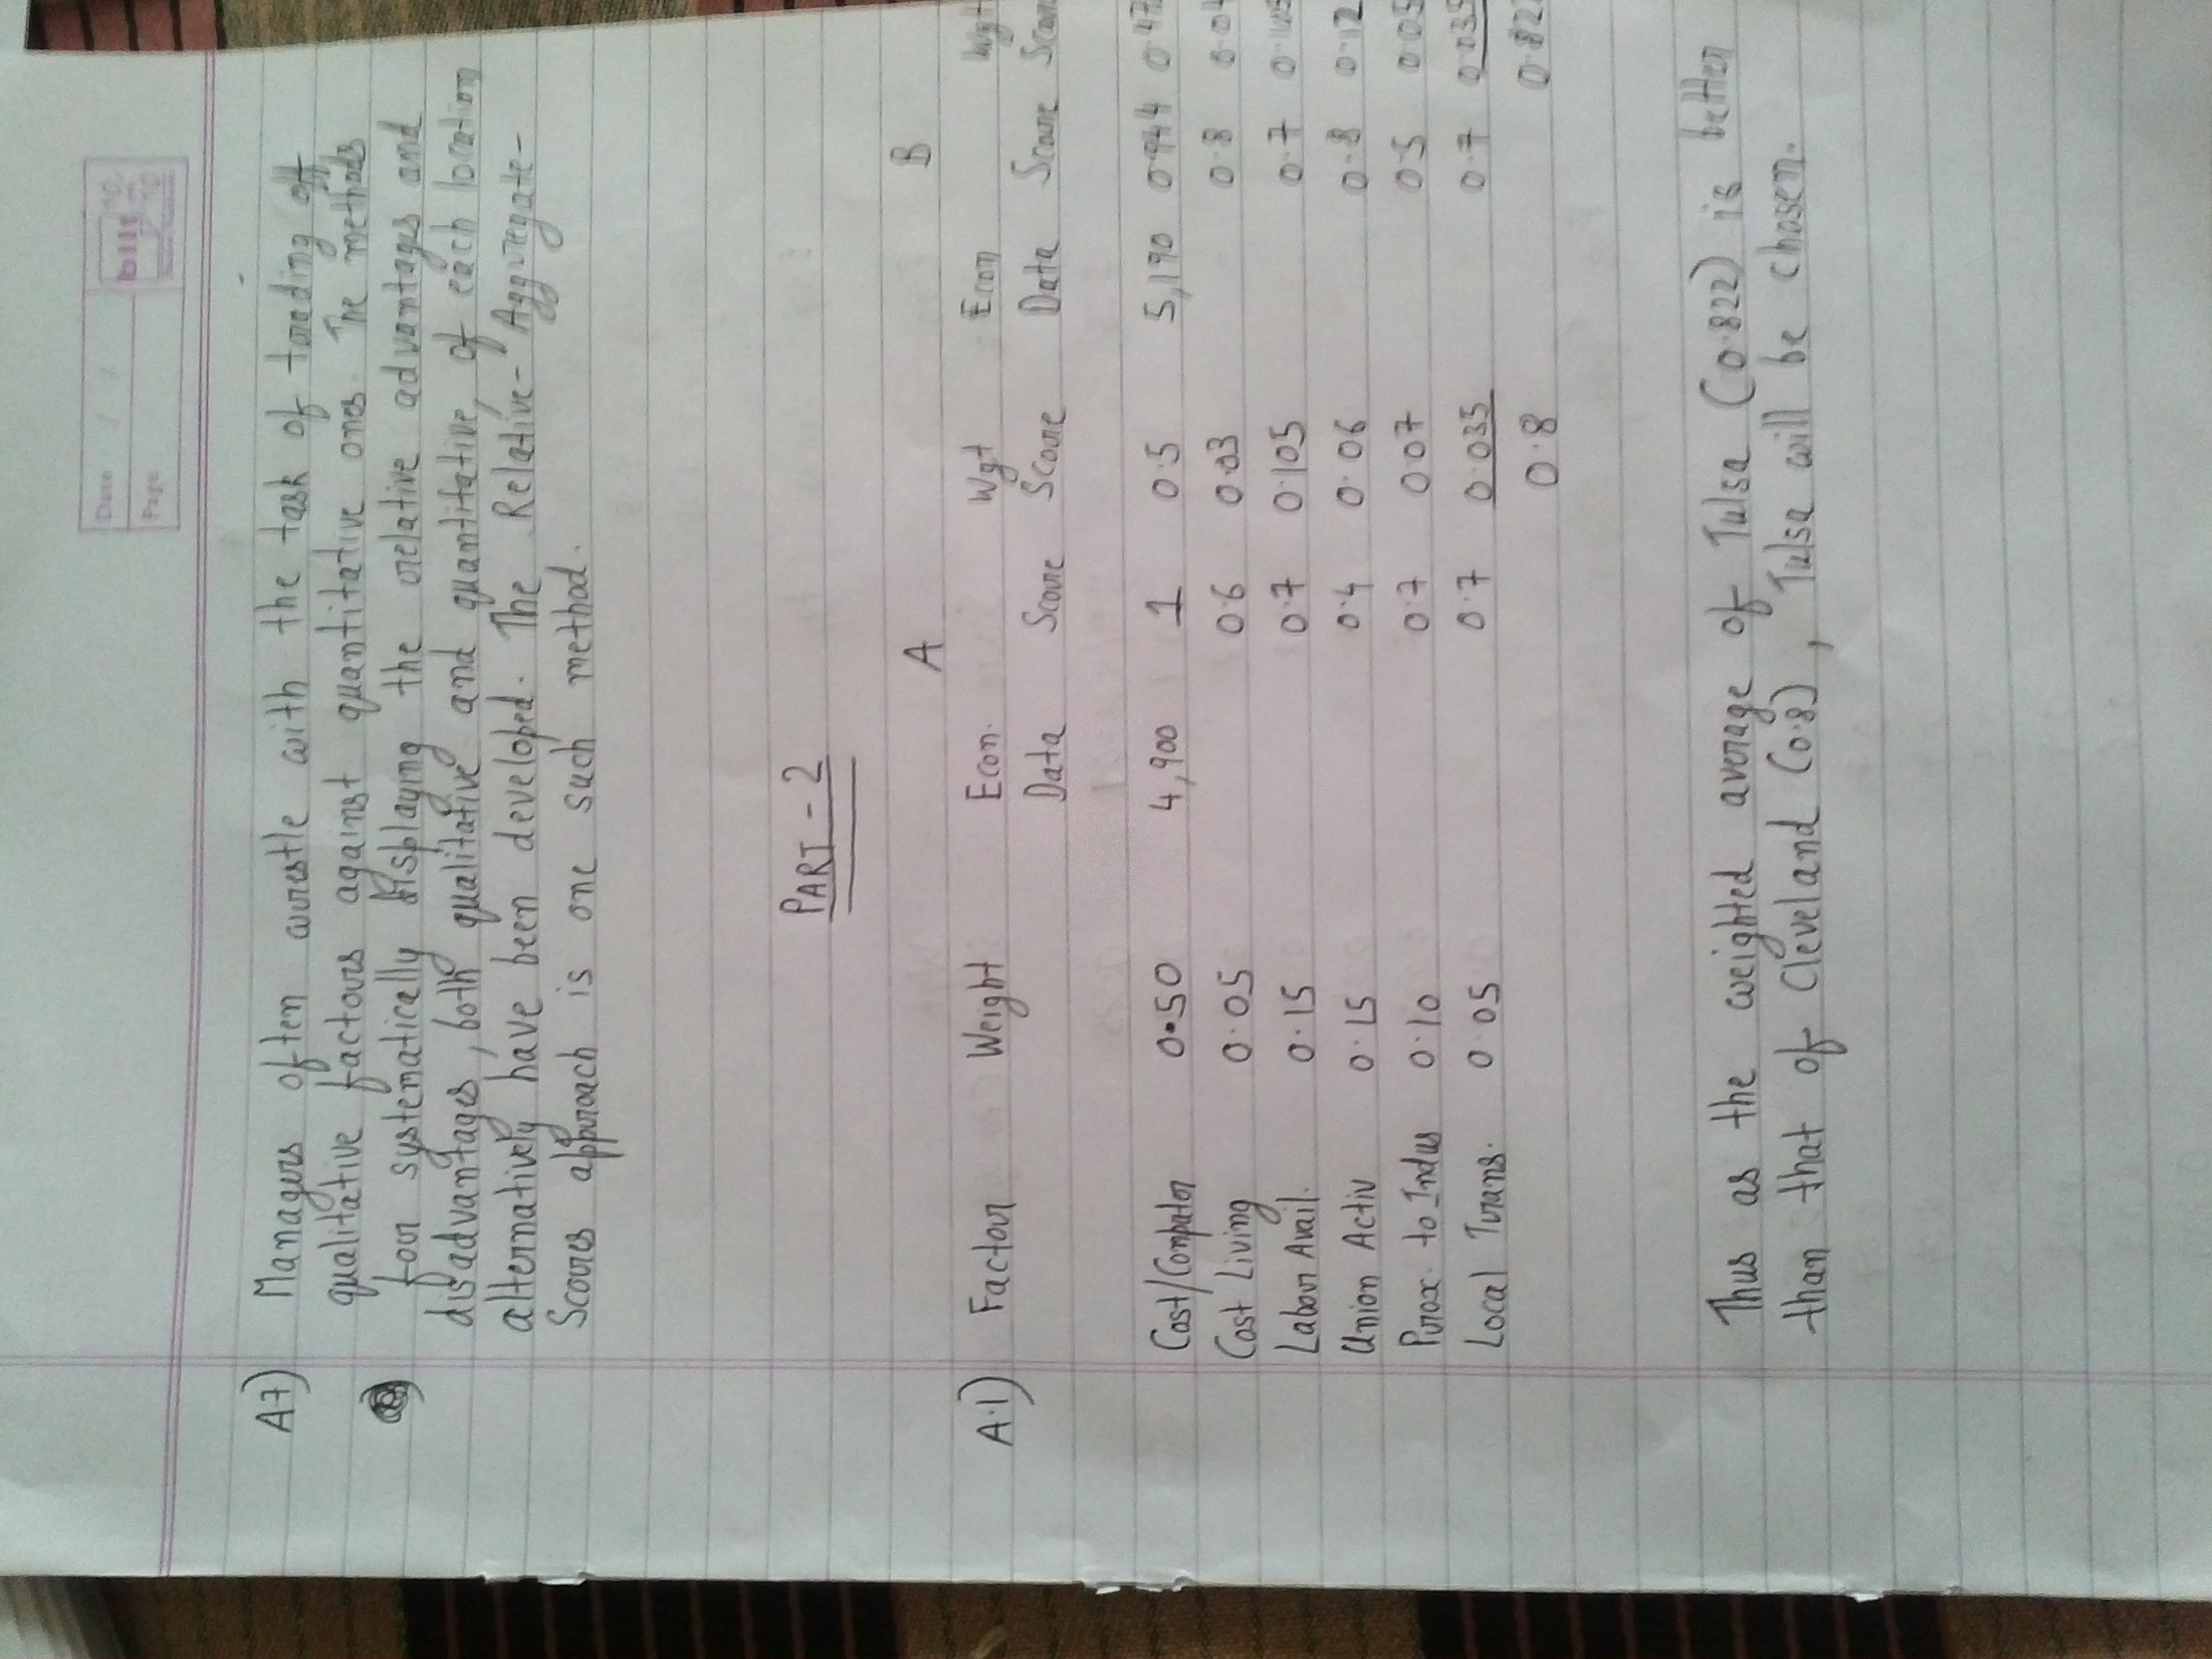 Date / /
Page
A7) Managers often wrestle with the task of trading off
qualitative factors against quantitative ones. The methods
for systematically displaying the relative advantages and
disadvantages, both qualitative and quantitative, of each location
alternatively have been developed. The Relative-Aggregate-
Scores approach is one such method.
PART-2
A B
A.1) Factor Weight Econ. Wgt Econ Wgt
Data Score Score Data Score Score
Cost/Computer 0.50 4,900 1 0.5 5,190 0.944 0.47
Cost Living 0.05 0.6 0.03 0.8 0.04
Labor Avail. 0.15 0.7 0.105 0.7 0.105
Union Activ 0.15 0.4 0.06 0.8 0.12
Prox. to Indus 0.10 0.7 0.07 0.5 0.05
Local Trans. 0.05 0.7 0.035 0.7 0.035
0.8 0.822
Thus as the weighted average of Tulsa (0.822) is better
than that of Cleveland (0.8), Tulsa will be chosen.